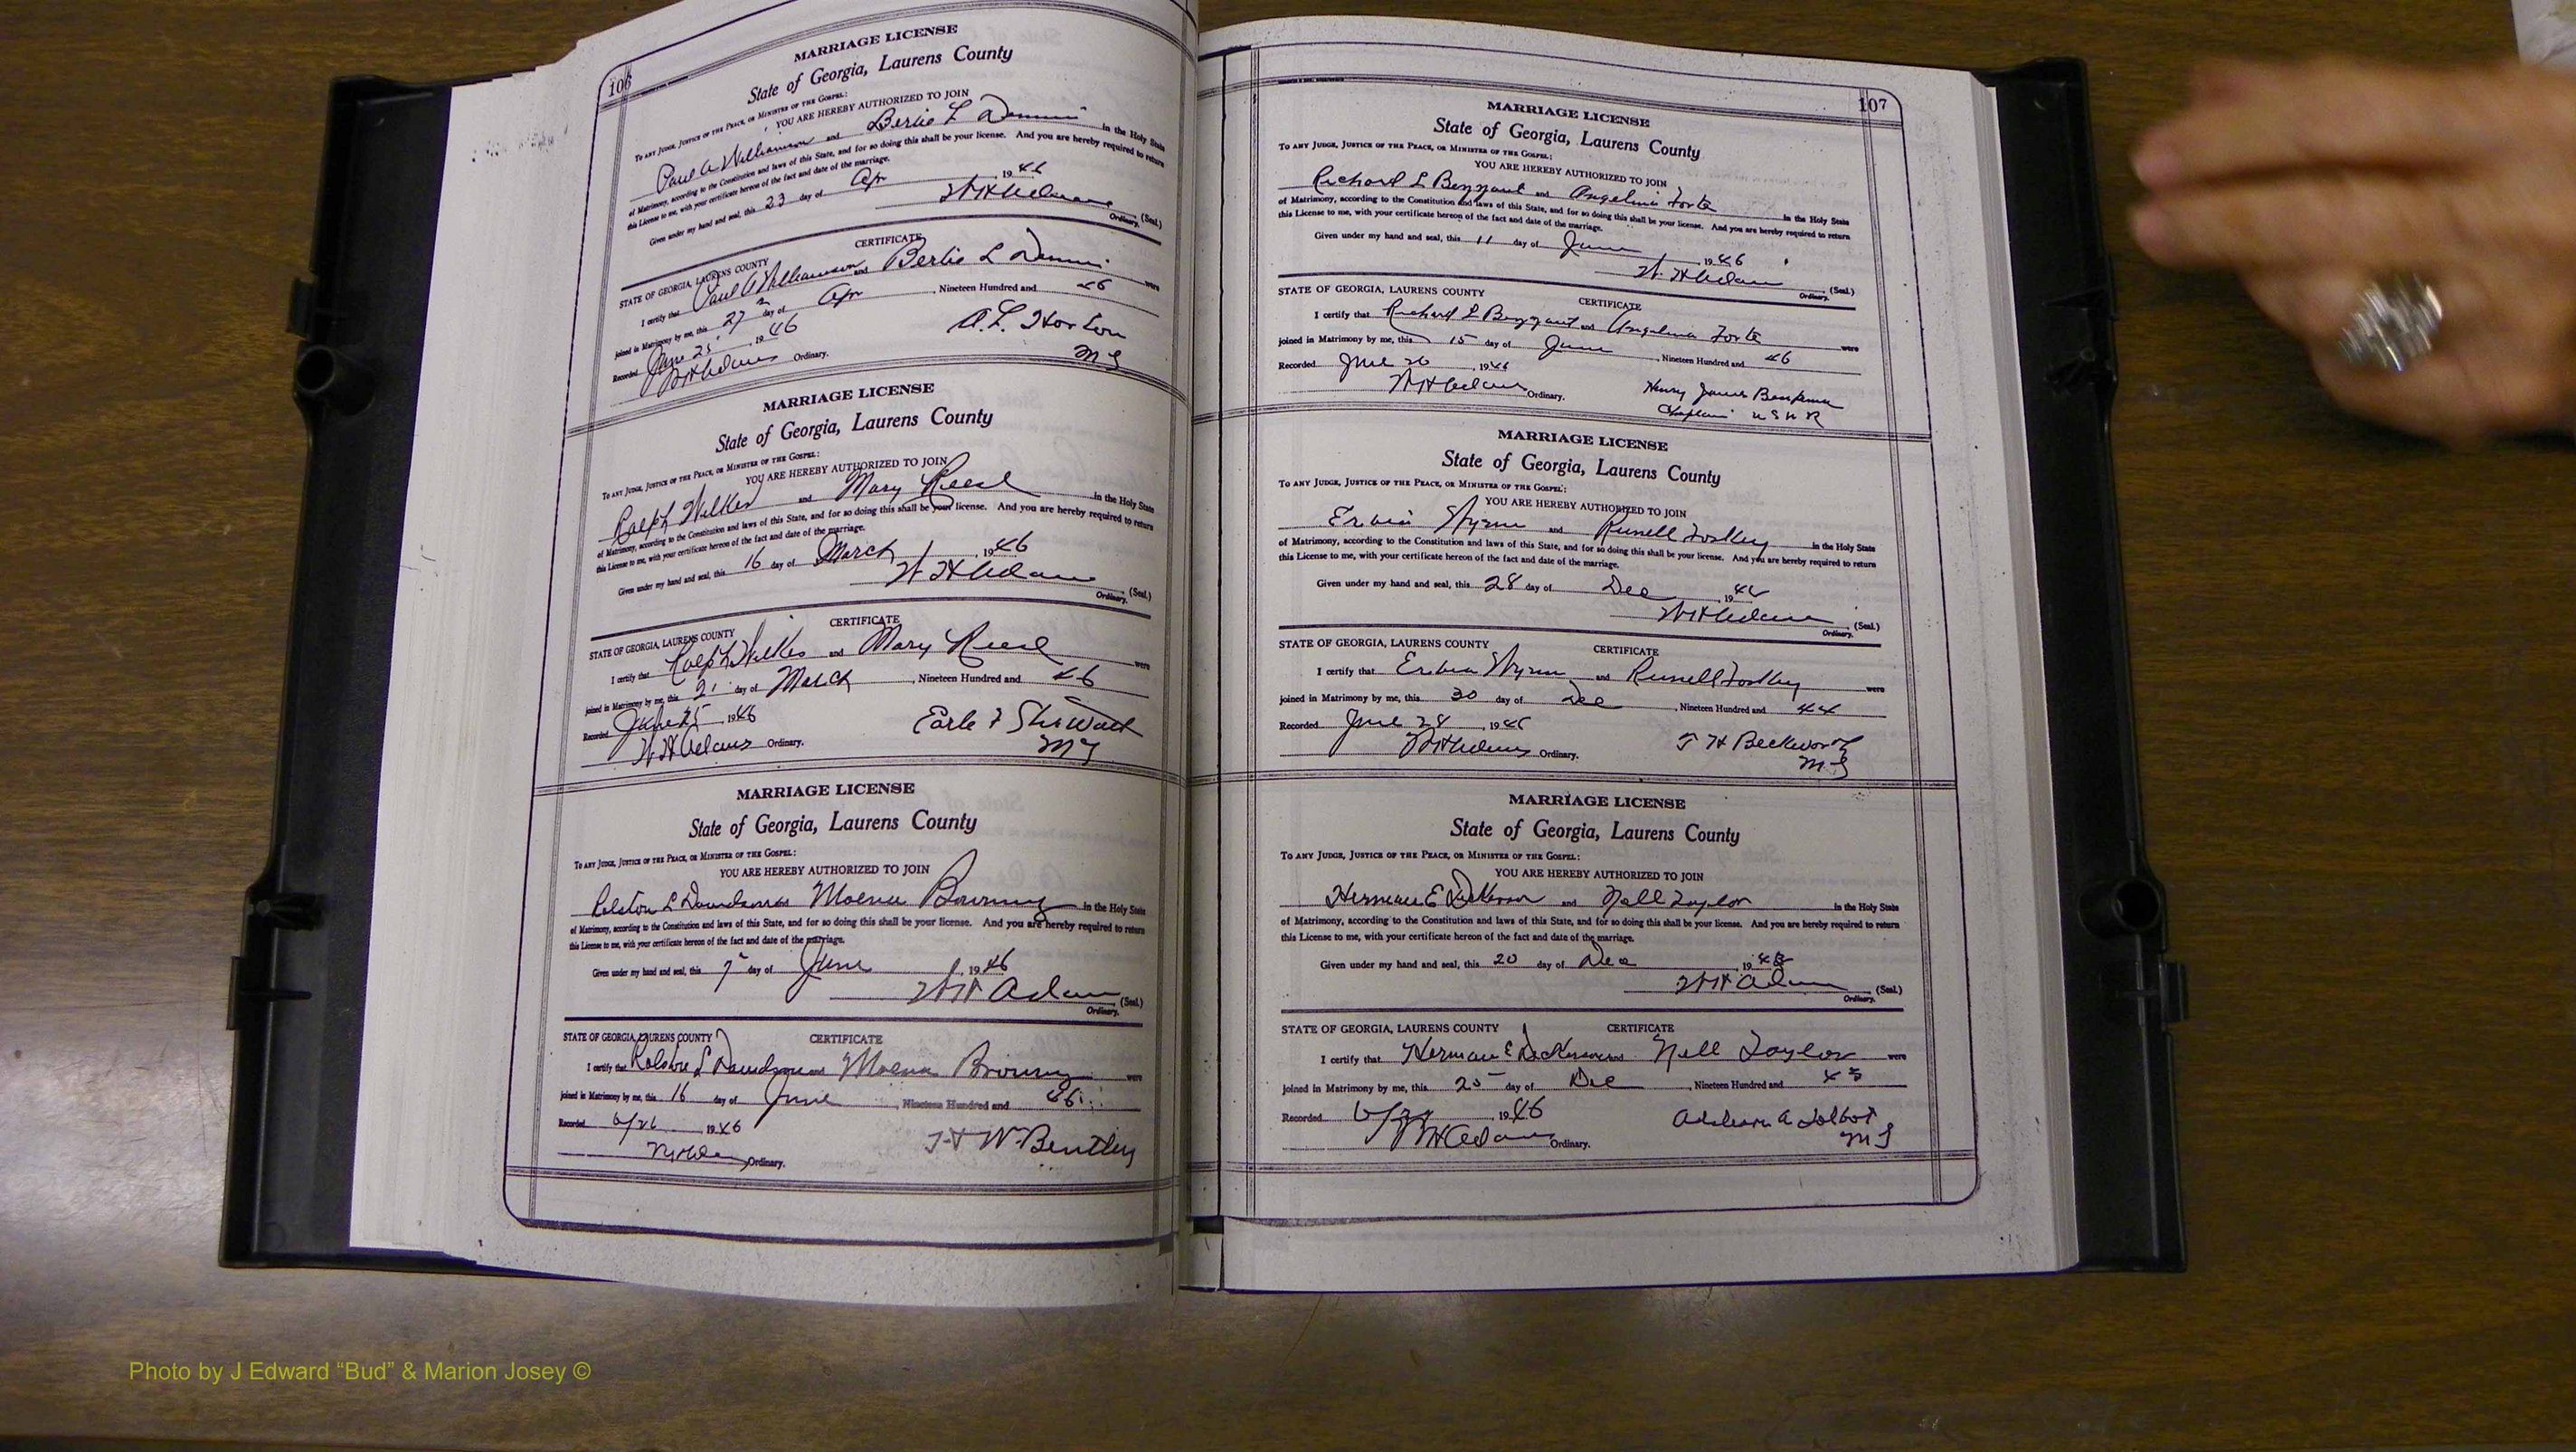 106
MARRIAGE LICENSE
State of Georgia, Laurens County
To ANY JUDGE, JUSTICE OF THE PEACE, OR MINISTER OF THE GOSPEL:
YOU ARE HEREBY AUTHORIZED TO JOIN
Paul A Williamson and Bertie L in the Holy State
of Matrimony, according to the Constitution and laws of this State, and for so doing this shall be your license. And you are hereby required to return
this License to me, with your certificate hereon of the fact and date of the marriage.
Given under my hand and seal, this 23 day of Apr , 1946
W H Adams (Seal.)
Ordinary.
CERTIFICATE
STATE OF GEORGIA, LAURENS COUNTY
I certify that Paul A Williamson and Bertie L were
joined in Matrimony by me, this 27 day of Apr , Nineteen Hundred and 46
Recorded June 25 , 1946 A. L. Horton
W H Adams Ordinary. M G
MARRIAGE LICENSE
State of Georgia, Laurens County
To ANY JUDGE, JUSTICE OF THE PEACE, OR MINISTER OF THE GOSPEL:
YOU ARE HEREBY AUTHORIZED TO JOIN
Ralph Wilkes and Mary Reese in the Holy State
of Matrimony, according to the Constitution and laws of this State, and for so doing this shall be your license. And you are hereby required to return
this License to me, with your certificate hereon of the fact and date of the marriage.
Given under my hand and seal, this 16 day of March , 1946
W H Adams (Seal.)
Ordinary.
CERTIFICATE
STATE OF GEORGIA, LAURENS COUNTY
I certify that Ralph Wilkes and Mary Reese were
joined in Matrimony by me, this 21 day of March , Nineteen Hundred and 46
Recorded June 25 1946 Earle F Stirwalt
W H Adams Ordinary. M G
MARRIAGE LICENSE
State of Georgia, Laurens County
To ANY JUDGE, JUSTICE OF THE PEACE, OR MINISTER OF THE GOSPEL:
YOU ARE HEREBY AUTHORIZED TO JOIN
Ralston L in the Holy State
of Matrimony, according to the Constitution and laws of this State, and for so doing this shall be your license. And you are hereby required to return
this License to me, with your certificate hereon of the fact and date of the marriage.
Given under my hand and seal, this 7 day of June , 1946
W H Adams (Seal.)
Ordinary.
STATE OF GEORGIA, LAURENS COUNTY CERTIFICATE
I certify that Ralston L and were
joined in Matrimony by me, this 16 day of June , Nineteen Hundred and 46
Recorded 6/26 , 1946
W. Bentley
Ordinary.
107
MARRIAGE LICENSE
State of Georgia, Laurens County
To ANY JUDGE, JUSTICE OF THE PEACE, OR MINISTER OF THE GOSPEL:
YOU ARE HEREBY AUTHORIZED TO JOIN
Richard L and Angelina Forte in the Holy State
of Matrimony, according to the Constitution and laws of this State, and for so doing this shall be your license. And you are hereby required to return
this License to me, with your certificate hereon of the fact and date of the marriage.
Given under my hand and seal, this 11 day of June , 1946
W. H Adams (Seal.)
Ordinary.
STATE OF GEORGIA, LAURENS COUNTY CERTIFICATE
I certify that Richard L and Angelina Forte were
joined in Matrimony by me, this 15 day of June , Nineteen Hundred and 46
Recorded June 26 , 1946 Henry James
W H Adams Ordinary. Chaplain U S N R
MARRIAGE LICENSE
State of Georgia, Laurens County
To ANY JUDGE, JUSTICE OF THE PEACE, OR MINISTER OF THE GOSPEL:
YOU ARE HEREBY AUTHORIZED TO JOIN
Wynn and Russell in the Holy State
of Matrimony, according to the Constitution and laws of this State, and for so doing this shall be your license. And you are hereby required to return
this License to me, with your certificate hereon of the fact and date of the marriage.
Given under my hand and seal, this 28 day of Dec , 1944
W H Adams (Seal.)
Ordinary.
STATE OF GEORGIA, LAURENS COUNTY CERTIFICATE
I certify that Wynn and Russell were
joined in Matrimony by me, this 30 day of Dec , Nineteen Hundred and 44
Recorded June 28 , 1946 T H Beckworth
W H Adams Ordinary. M. G
MARRIAGE LICENSE
State of Georgia, Laurens County
To ANY JUDGE, JUSTICE OF THE PEACE, OR MINISTER OF THE GOSPEL:
YOU ARE HEREBY AUTHORIZED TO JOIN
Herman E Dickerson and Nell Taylor in the Holy State
of Matrimony, according to the Constitution and laws of this State, and for so doing this shall be your license. And you are hereby required to return
this License to me, with your certificate hereon of the fact and date of the marriage.
Given under my hand and seal, this 20 day of Dec , 19
W H Adams (Seal.)
Ordinary.
STATE OF GEORGIA, LAURENS COUNTY CERTIFICATE
I certify that Herman E Dickerson and Nell Taylor were
joined in Matrimony by me, this 25 day of Dec , Nineteen Hundred and 43
Recorded , 1946 A Tolbot
W H Adams Ordinary. M G
Photo by J Edward “Bud” & Marion Josey ©